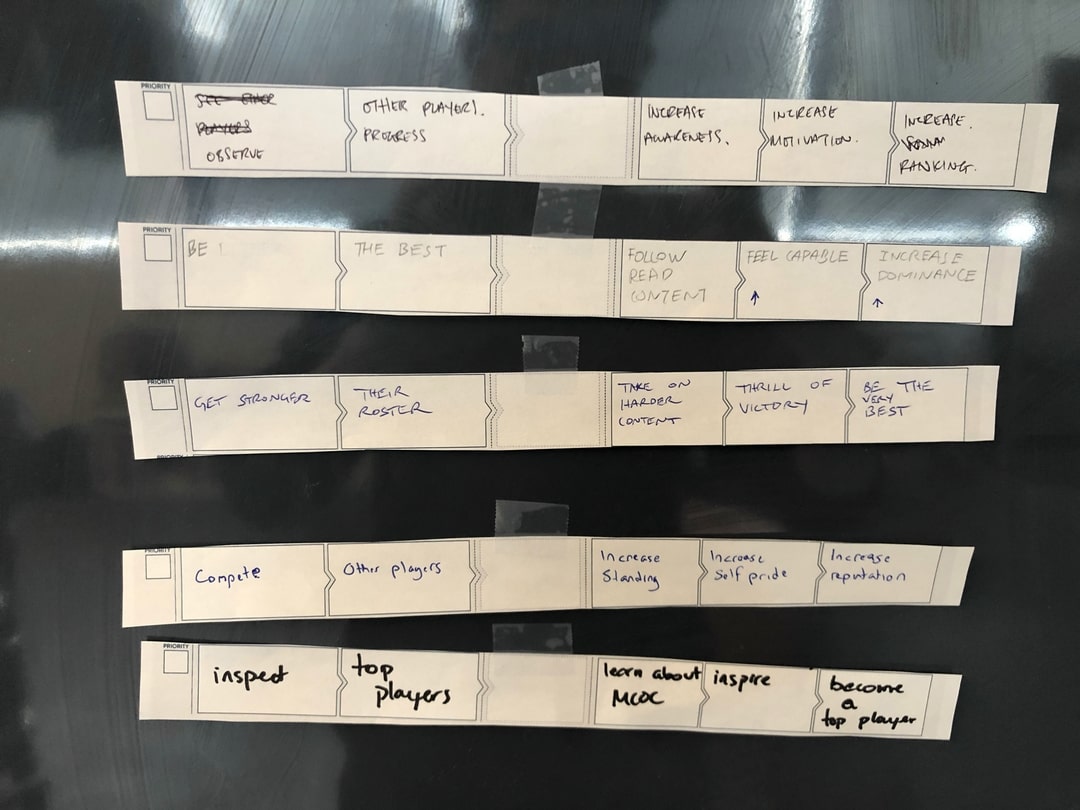 PRIORITY
SEE OTHER
PLAYERS
OBSERVE
OTHER PLAYER!.
PROGRESS
INCREASE
AWARENESS.
INCREASE
MOTIVATION.
INCREASE.
RANKING.
PRIORITY
BE
THE BEST
FOLLOW
READ
CONTENT
FEEL CAPABLE
↑
INCREASE
DOMINANCE
↑
PRIORITY
GET STRONGER
THEIR
ROSTER
TAKE ON
HARDER
CONTENT
THRILL OF
VICTORY
BE THE
VERY
BEST
PRIORITY
PRIORITY
Compete
Other players
Increase
Standing
Increase
Self pride
Increase
reputation
PRIORITY
inspect
top
players
learn about
MCOC
inspire
become
a
top player